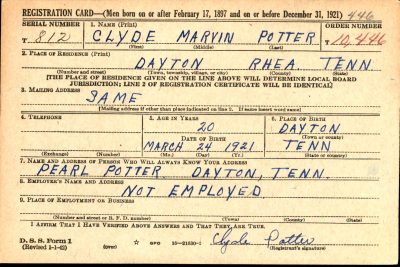 REGISTRATION CARD—(Men born on or after February 17, 1897 and on or before December 31, 1921) 446
SERIAL NUMBER 1. NAME (Print) ORDER NUMBER
T 812 CLYDE MARVIN POTTER 10,446
(First) (Middle) (Last)
2. PLACE OF RESIDENCE (Print)
DAYTON RHEA TENN
(Number and street) (Town, township, village, or city) (County) (State)
[THE PLACE OF RESIDENCE GIVEN ON THE LINE ABOVE WILL DETERMINE LOCAL BOARD
JURISDICTION; LINE 2 OF REGISTRATION CERTIFICATE WILL BE IDENTICAL]
3. MAILING ADDRESS
SAME
[Mailing address if other than place indicated on line 2. If same insert word same]
4. TELEPHONE 5. AGE IN YEARS 6. PLACE OF BIRTH
20 DAYTON
DATE OF BIRTH (Town or county)
MARCH 24 1921 TENN
(Exchange) (Number) (Mo.) (Day) (Yr.) (State or country)
7. NAME AND ADDRESS OF PERSON WHO WILL ALWAYS KNOW YOUR ADDRESS
PEARL POTTER DAYTON, TENN.
8. EMPLOYER'S NAME AND ADDRESS
NOT EMPLOYED
9. PLACE OF EMPLOYMENT OR BUSINESS
(Number and street or R. F. D. number) (Town) (County) (State)
I AFFIRM THAT I HAVE VERIFIED ABOVE ANSWERS AND THAT THEY ARE TRUE.
D. S. S. Form 1 GPO 16—21630-2 Clyde Potter
(Revised 1-1-42) (Registrant's signature)